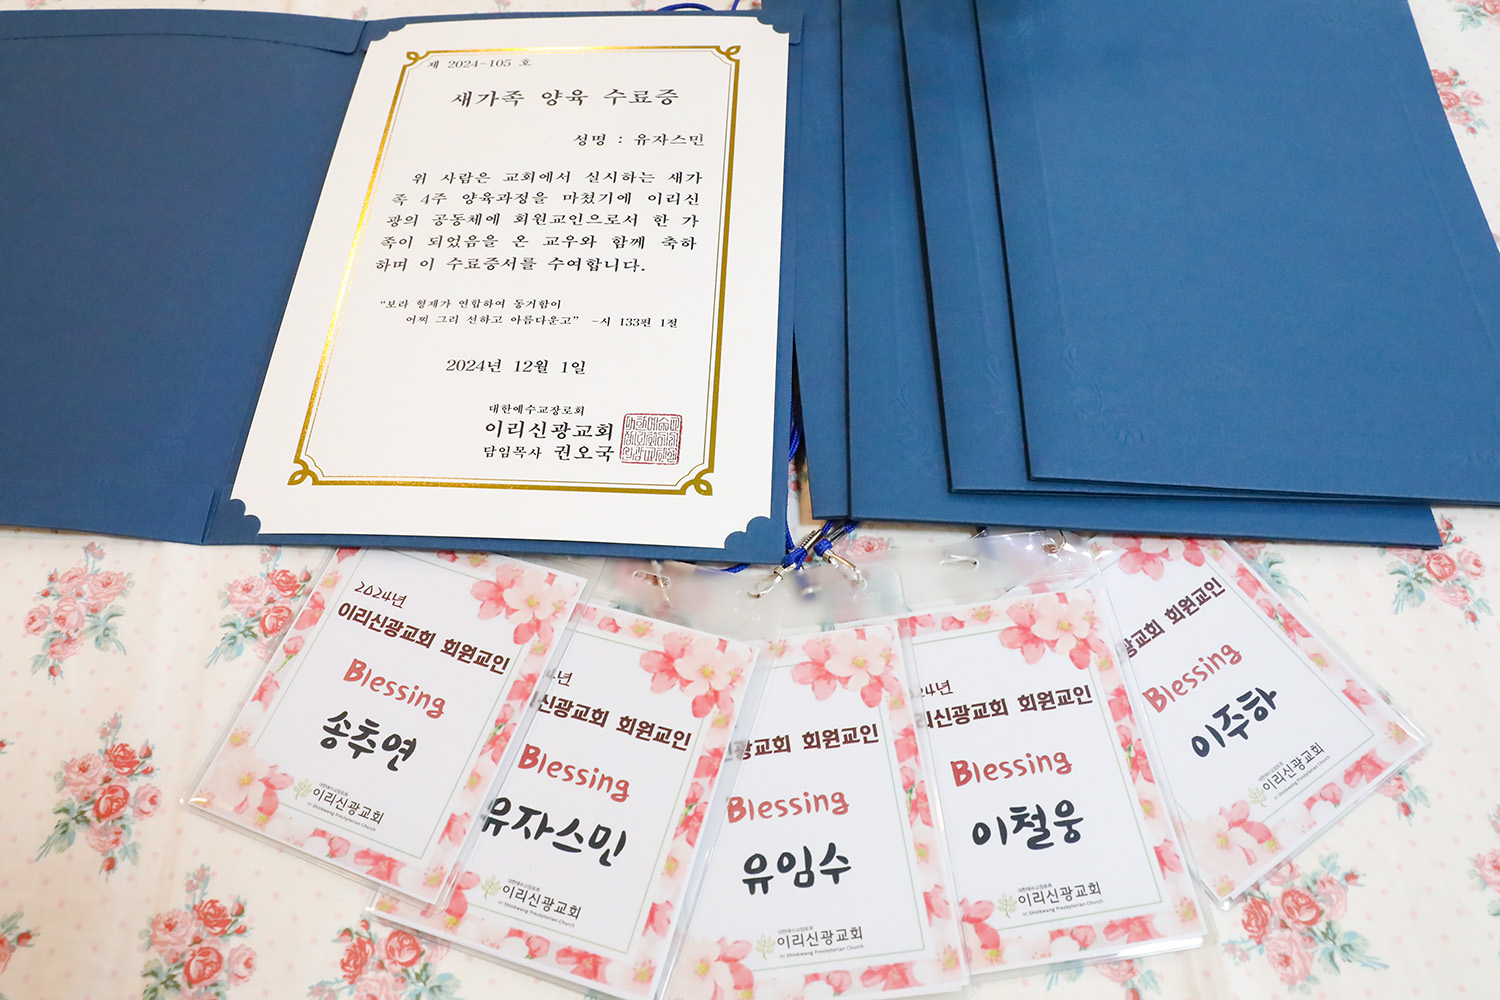 제 2024-105 호
새가족 양육 수료증
성명 : 유자스민
위 사람은 교회에서 실시하는 새가
족 4주 양육과정을 마쳤기에 이리신
광의 공동체에 회원교인으로서 한 가
족이 되었음을 온 교우와 함께 축하
하며 이 수료증서를 수여합니다.
“보라 형제가 연합하여 동거함이
어찌 그리 선하고 아름다운고” -시 133편 1절
2024년 12월 1일
대한예수교장로회
이리신광교회
담임목사 권오국
2024년
이리신광교회 회원교인
Blessing
송추연
대한예수교장로회
이리신광교회
Iri Shinkwang Presbyterian Church
년
신광교회 회원교인
Blessing
유자스민
대한예수교장로회
이리신광교회
Iri Shinkwang Presbyterian Church
광교회 회원교인
Blessing
유임수
대한예수교장로회
이리신광교회
Iri Shinkwang Presbyterian Church
24년
리신광교회 회원교인
Blessing
이철웅
대한예수교장로회
이리신광교회
Iri Shinkwang Presbyterian Church
광교회 회원교인
Blessing
이주하
대한예수교장로회
이리신광교회
Iri Shinkwang Presbyterian Church